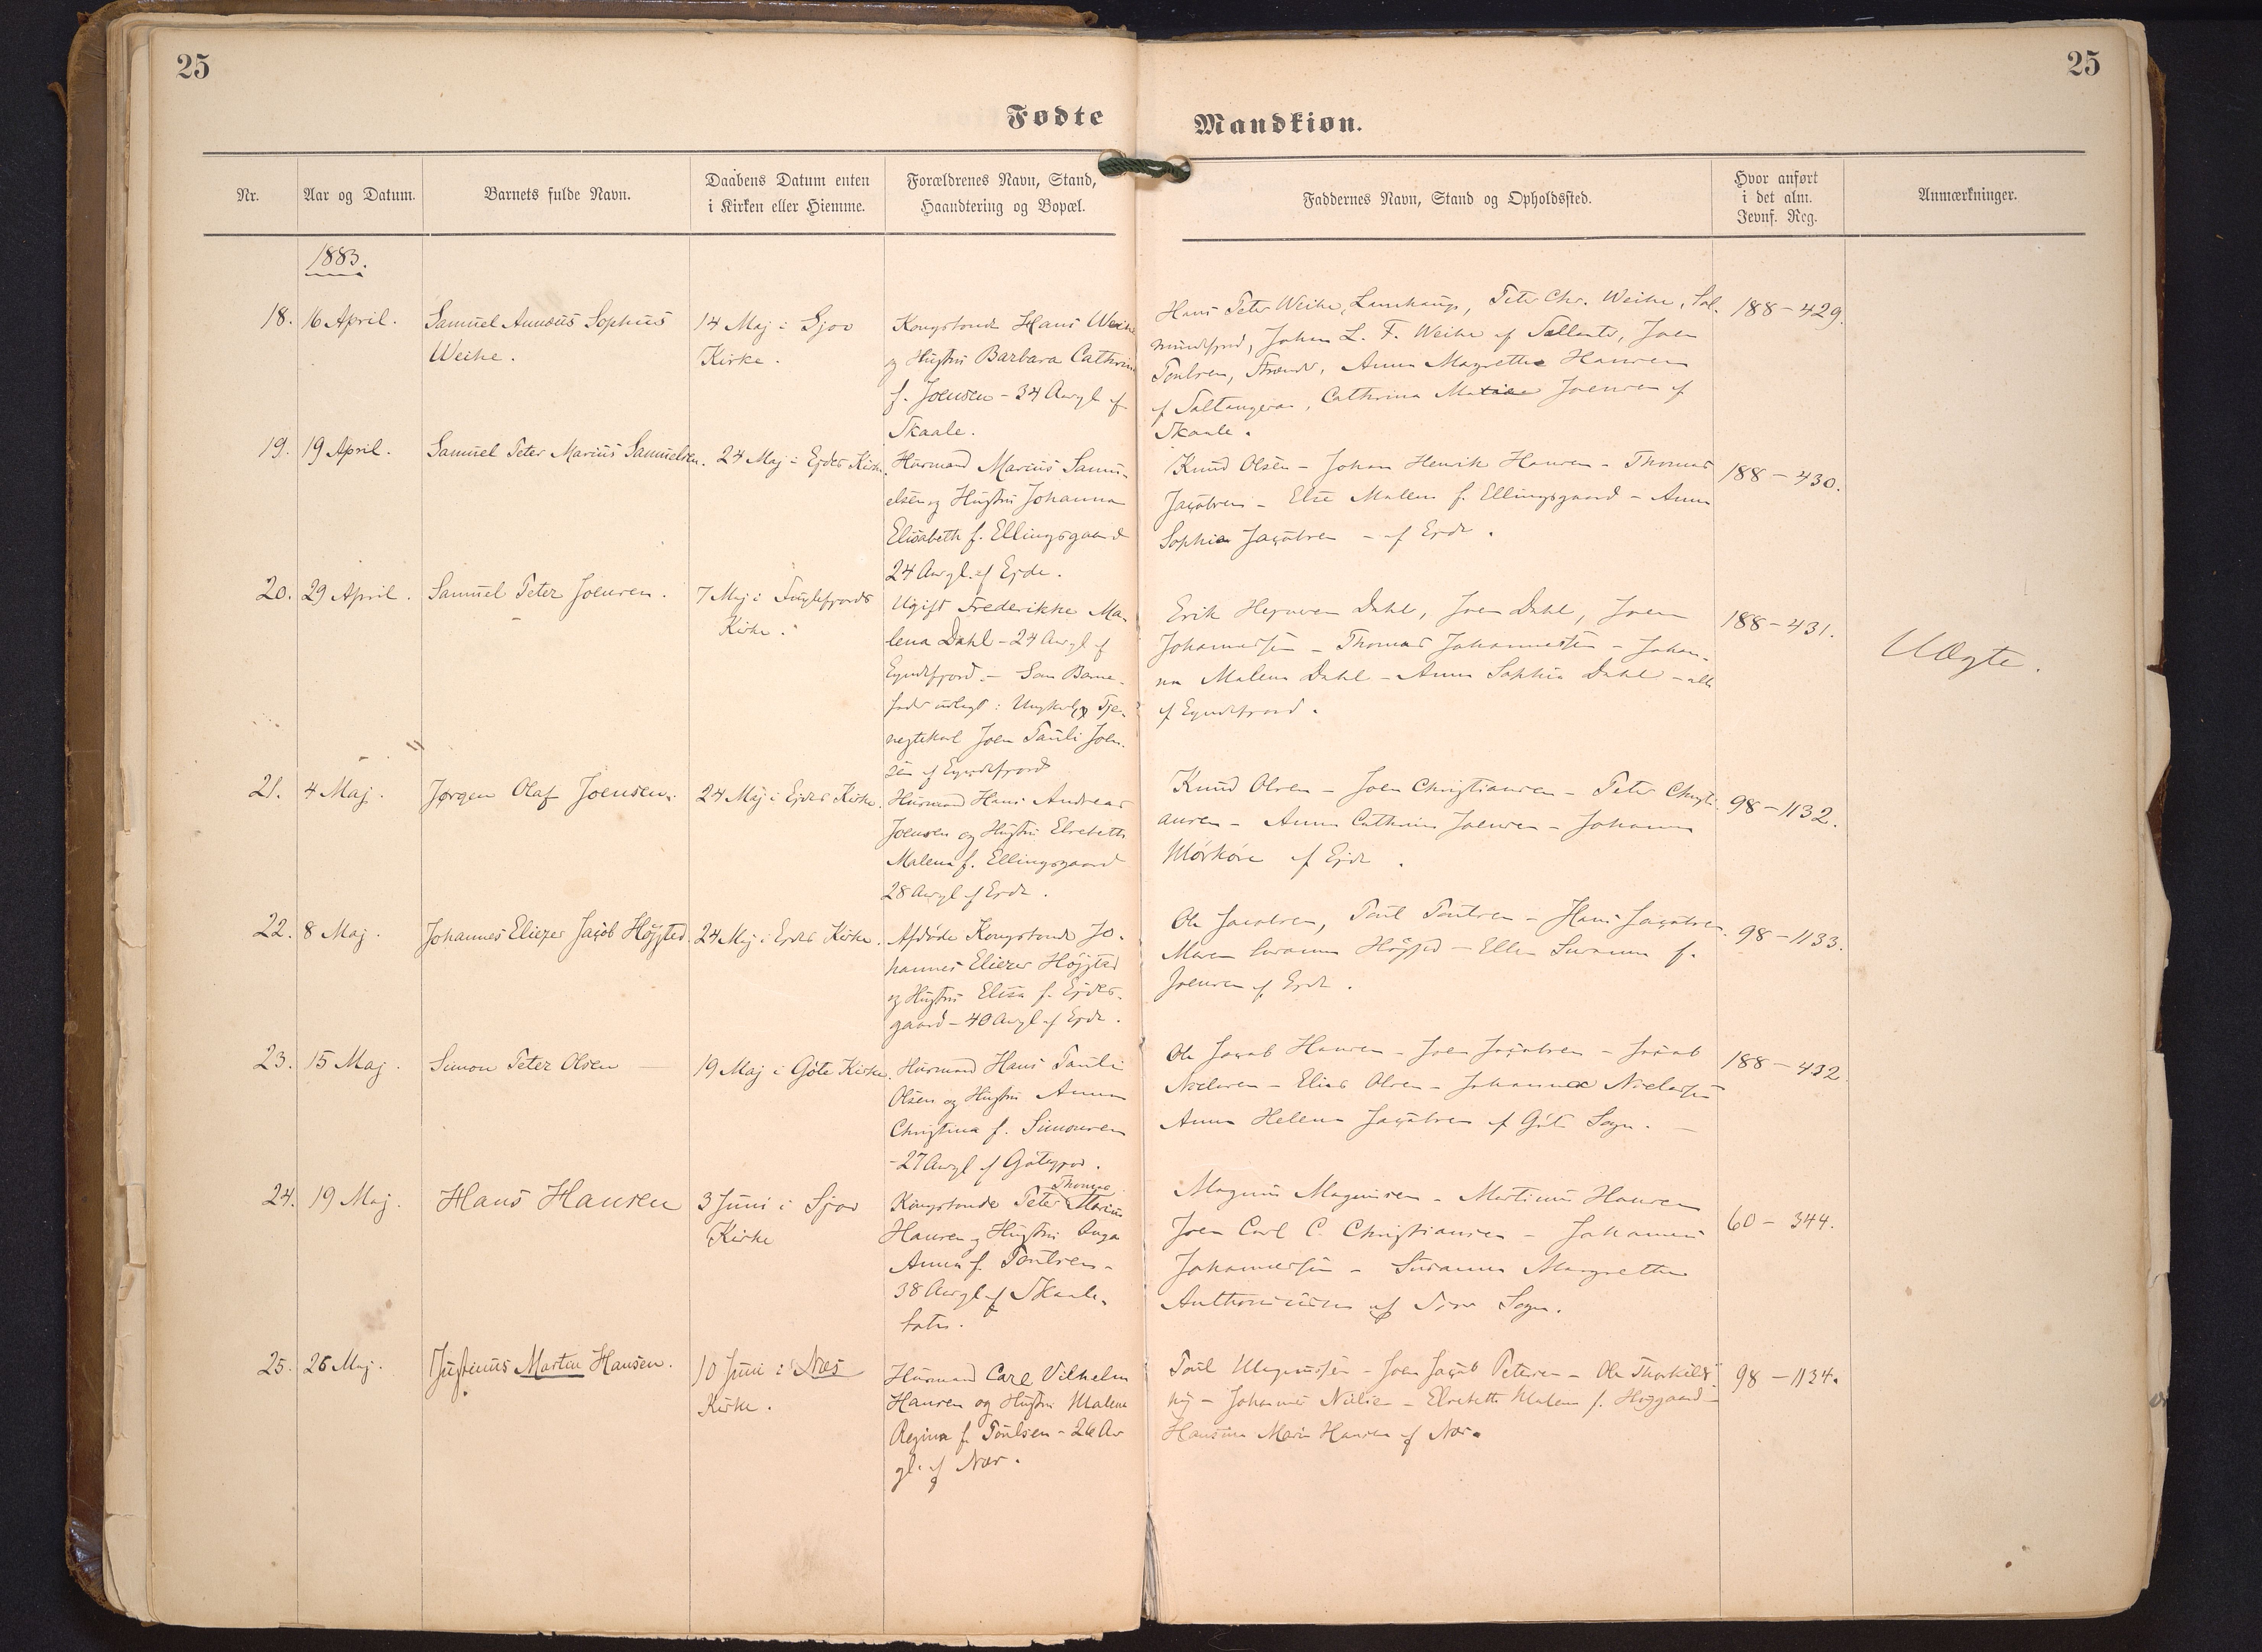 25
25
Fødte
Mandkiøn.
Nr.
Aar og Datum.
Barnets fulde Navn.
Daabens Datum enten
i Kirken eller Hiemme.
Forældrenes Navn, Stand,
Haandtering og Bopæl.
Faddernes Navn, Stand og Opholdssted.
Hvor anført
i det alm.
Jevnf. Reg.
Anmærkninger.
1883.
18.
16 April.
Samuel Sophus
Weihe.
14 Maj i Gjov
Kirke.
Kongsbonde Hans Weihe
og Hustru Barbara Cathrina
f. Joensen - 34 Aargl. af
Skaale.
Hans Peter Weihe, Peter Chr. Weihe, Sal-
mundefjord, Johan L. F. Weihe af Joen
Poulsen, Strendr, Anna Magrethe Hansen
af Saltangera, Cathrina Maria Joensen af
Skaale.
188-429.
19.
19 April.
Samuel Peter Marius Samuelsen.
24 Maj i Ejdes Kirke.
Husmand Marius Samu-
elsen og Hustru Johanna
Elisabeth f. Ellingsgaard
24 Aargl. af Ejde.
Knud Olsen - Johan Henrik Hansen - Thomas
Jacobsen - Else Malena f. Ellingsgaard - Anna
Sophia Jacobsen - af Ejde.
188-430.
20.
29 April.
Samuel Peter Joensen.
7 Maj i Fuglefjords
Kirke.
Ugift Frederikke Ma-
lena Dahl - 24 Aargl. af
Ejndefjord. - Som Barne-
fader udlagt: Ungkarl og Tje-
nestekarl Joen Pauli Joen-
sen af Ejndefjord
Erik Dahl, Joen Dahl, Joen
Johannessen - Thomas Johannessen - Johan-
na Malena Dahl - Anna Sophia Dahl - alle
af Ejndefjord.
188-431.
Uægte.
21.
4 Maj.
Jørgen Olaf Joensen.
24 Maj i Ejdes Kirke.
Husmand Hans Andreas
Joensen og Hustru Elsebeth
Malena f. Ellingsgaard
28 Aargl. af Ejde.
Knud Olsen - Joen Christiansen - Peter Christi-
ansen - Anna Cathrina Joensen - Johanna
Mörköre af Ejde.
98-1132.
22.
8 Maj.
Johannes Eliezer Jacob Höjsted.
24 Maj i Ejdes Kirke.
Afdöde Kongsbonde Jo-
hannes Eliezer Höjsted
og Hustru Elisa f. Ejdes-
gaard - 40 Aargl. af Ejde.
Ole Jacobsen, Poul Poulsen - Hans Jacobsen.
Maren Susanna Höjsted - Ellen Susanna f.
Joensen af Ejde.
98-1133.
23.
15 Maj.
Simon Peter Olsen
19 Maj i Göte Kirke.
Husmand Hans Pauli
Olsen og Hustru Anna
Christina f. Simonsen
- 27 Aargl. af Götegjov.
Ole Jacob Hansen - Joen Jacobsen - Jacob
Nielsen - Elias Olsen - Johannes Nielsen
Anna Helena Jacobsen af Göte Sogn.
188-432.
24.
19 Maj.
Hans Hansen
3 Juni i Sjov
Kirke
Kongsbonde Peter Thomas Marius
Hansen og Hustru Inga
Anna f. Poulsen -
38 Aargl. af Skaale-
Magnus Magnusen - Martinus Hansen
Joen Carl C. Christiansen - Johannes
Johannessen - Susanna Magrethe
Sogn.
60-344.
25.
26 Maj.
Justinus Martin Hansen.
10 Juni i Næs
Kirke.
Husmand Carl Vilhelm
Hansen og Hustru Malena
Regina f. Poulsen - 26 Aar
gl. af Næs.
Poul Magnussen - Joen Jacob Petersen - Ole
Johannes - Elsebeth Malena f. Höjgaard -
Hansina Maria Hansen af Næs.
98-1134.